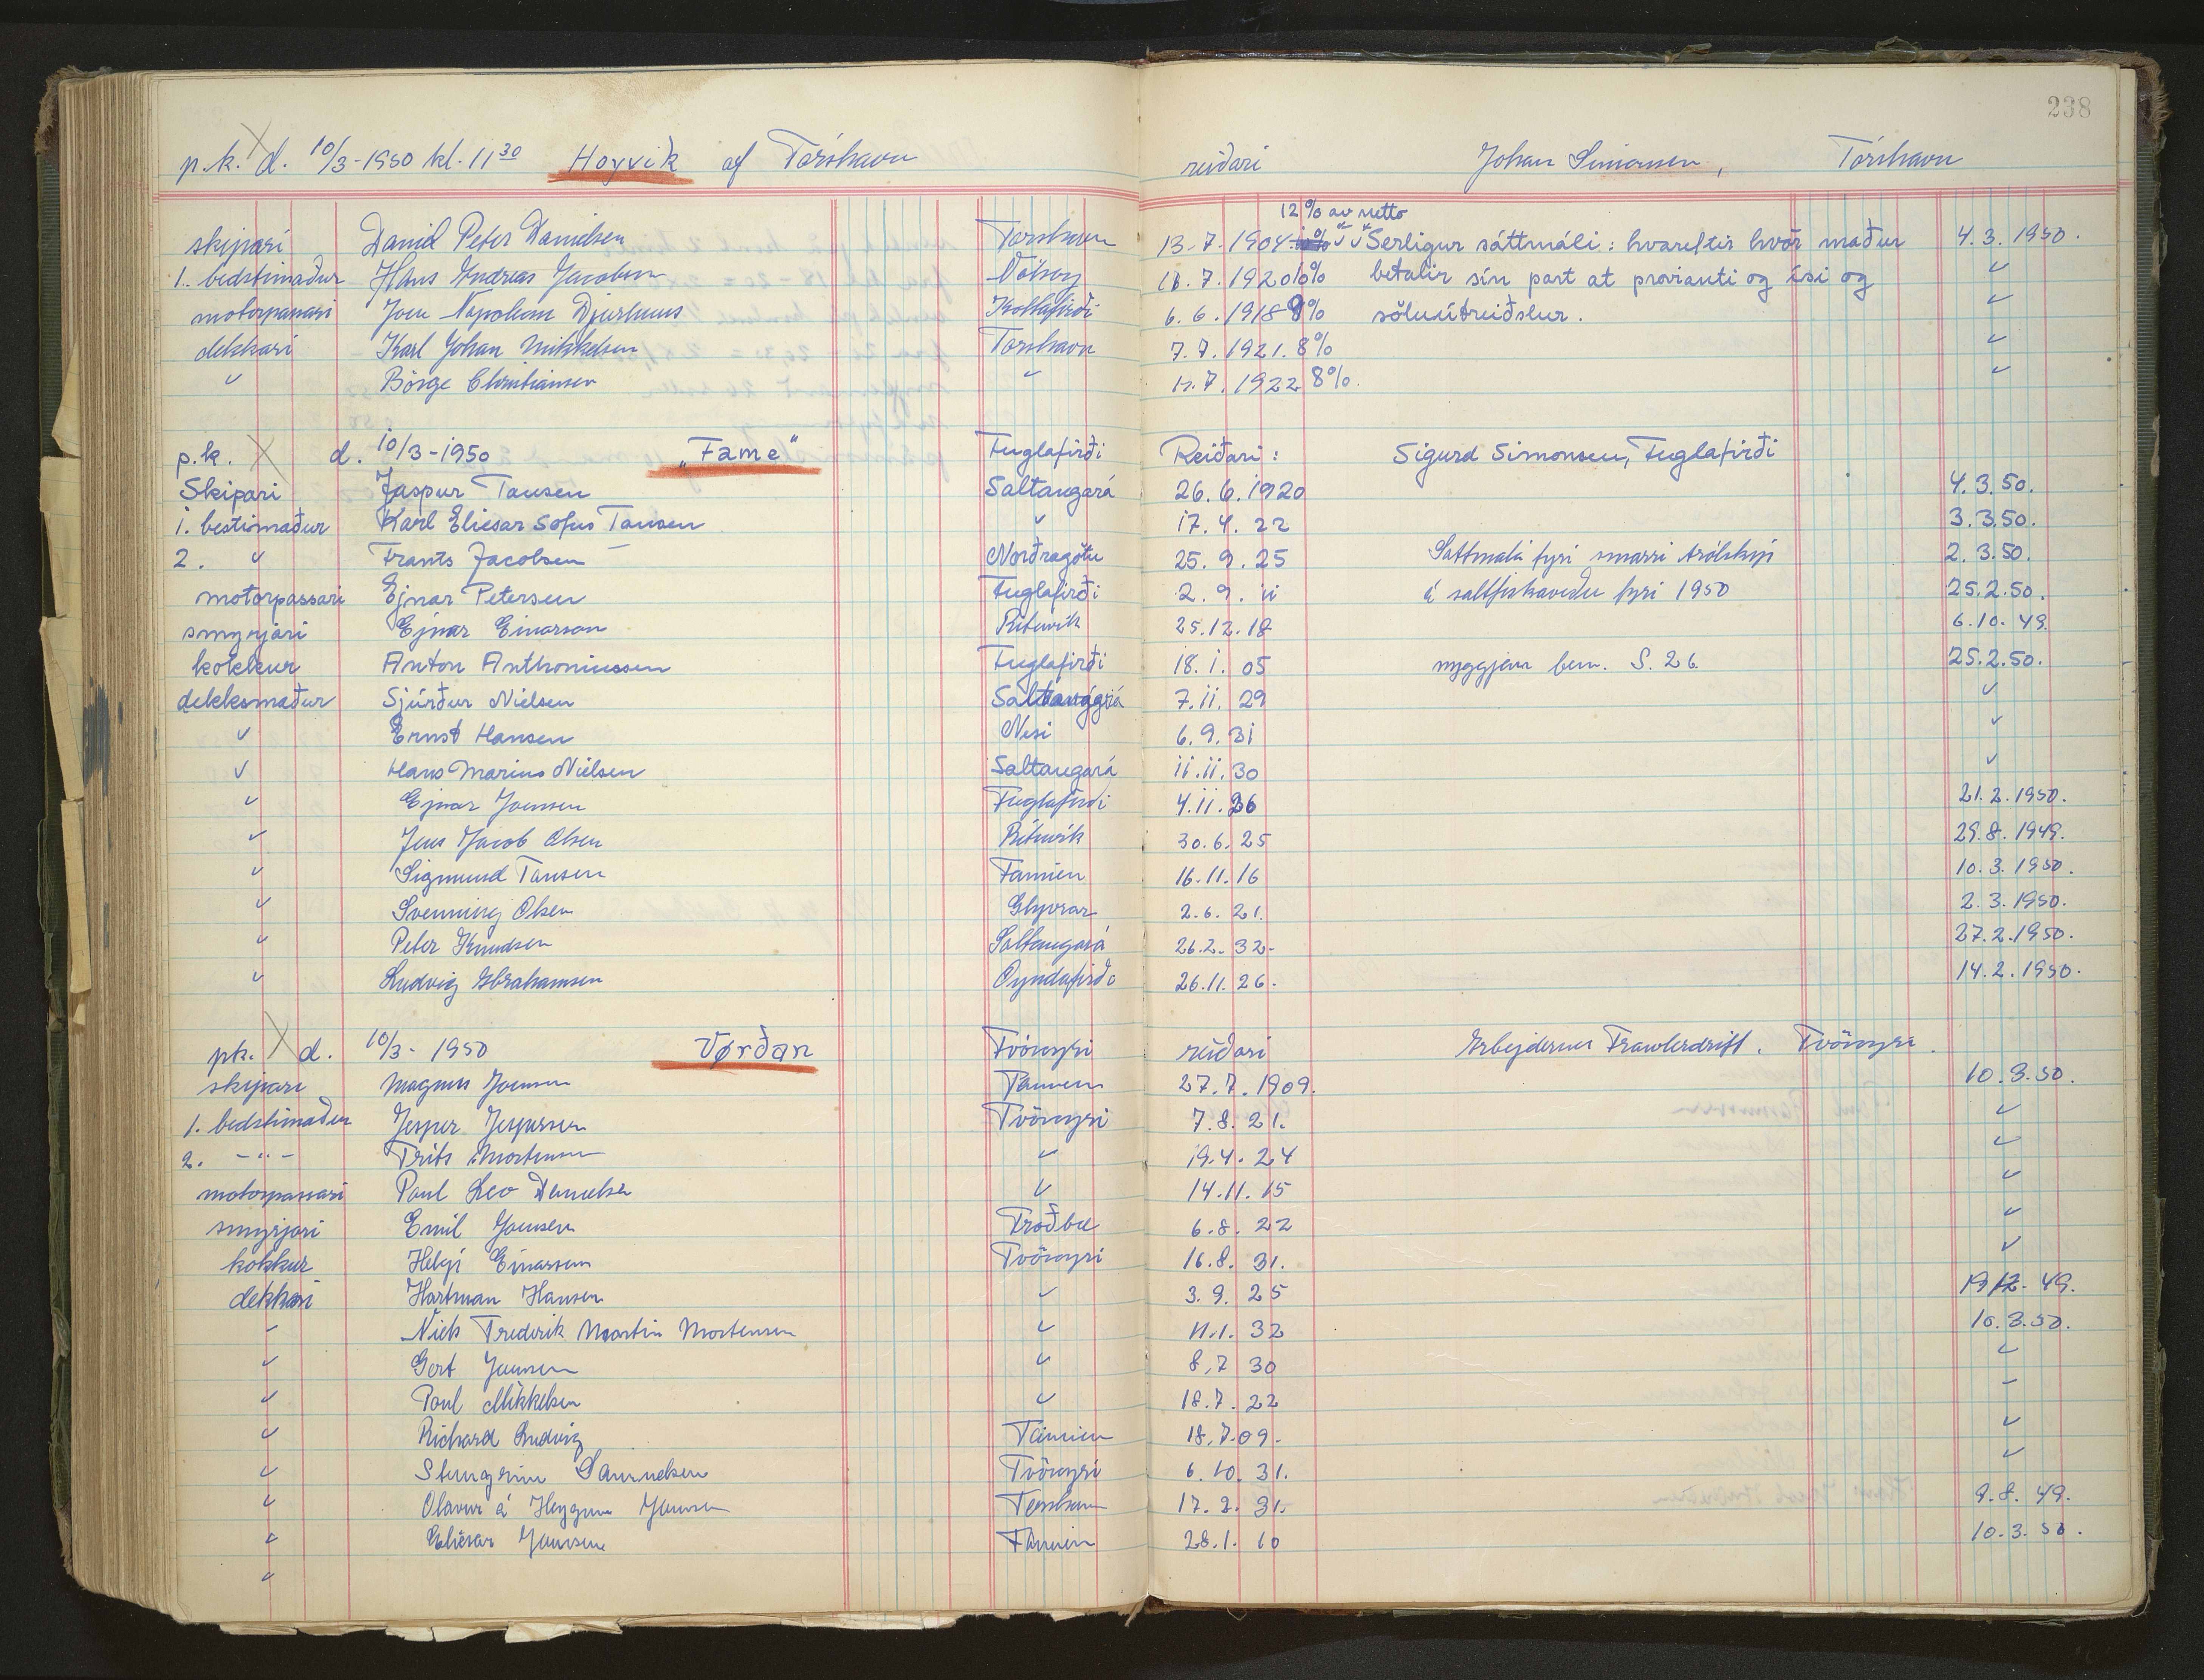 238
p.k. d. 10/3-1950 kl. 11 30 Hoyvík af Tórshavn reiðari Johan Simonsen, Tórshavn
12% av netto
skipari Daniel Peter Danielsen Tórshavn 13-7.1904 Serligur sáttmáli: hvareftir hvör maður 4.3.1950.
1. bedstimaður Hans Andreas Jacobsen 16.7.1920 10% betalir sín part at provianti og ísi og ✓
motorpassari Joen Napoleon Djurhuus Kollafirði 6.6.1918 9% söluútreiðslur. ✓
dekkari Karl Johan Mikkelsen Tórshavn 7.7.1921. 8% ✓
✓ Börge Christiansen ✓ 11.7.1922 8%. ✓
p.k. d. 10/3-1950 "Fame" Fuglafirði Reiðari: Sigurd Simonsen, Fuglafirði
Skipari Jaspur Tausen Saltangará 26.6.1920 4.3.50.
1. bestimaður Karl Eliesar Sofus Tausen ✓ 17.4.22 3.3.50.
2. ✓ Frants Jacobsen Norðragötu 25.9.25 Sáttmála fyri smærri trolskip 2.3.50.
motorpassari Ejnar Petersen Fuglafirði 2.9.11 á saltfiskaveiðu fyri 1950 25.2.50.
smyrjari Ejnar Einarson Rituvík 25.12.18 6.10.49.
kokkur Anton Anthoniussen Fuglafirði 18.1.05 S. 26. 25.2.50.
dekksmaður Sjúrður Nielsen Saltangará 7.11.29 ✓
✓ Ernst Hansen Nesi 6.9.31 ✓
✓ Hans Marius Nielsen Saltangará 11.11.30 ✓
✓ Ejnar Joensen Fuglafirði 4.11.26 21.2.1950.
✓ Jens Jacob Olsen Rituvík 30.6.25 29.8.1949.
✓ Sigmund Tausen Famien 16.11.16 10.3.1950.
✓ Svenning Olsen Glyvrar 2.6.21. 2.3.1950.
✓ Peter Knudsen Saltangará 26.2.32- 27.2.1950.
✓ Ludvig Abrahamsen Oyndafirði 26.11.26. 14.2.1950.
pk. d. 10/3-1950 Vørðan Tvöroyri reiðari Arbejdernes Trawlerdrift. Tvöroyri.
skipari Magnus Joensen Famien 27.7.1909. 10.3.50.
1. bedstimaður Jesper Jespersen Tvöroyri 7.8.21. ✓
2. -"- Frits Mortensen ✓ 19.4.24 ✓
motorpassari Poul Leo Danielsen ✓ 14.11.15 ✓
smyrjari Emil Joensen Froðbæ 6.8.22 ✓
kokkur Helgi Einarsson Tvöroyri 16.8.31. ✓
dekkari Hartman Hansen ✓ 3.9.25 19.12.49.
- Niels Frederik Martin Mortensen ✓ 11.1.32 10.3.50.
✓ Gert Joensen ✓ 8.7 30 ✓
✓ Poul Mikkelsen ✓ 18.7.22 -
✓ Richard Ludvig Famien 18.7.09. ✓
✓ Steingrim Samuelsen Tvöroyri 6.10.31. ✓
✓ Olavur á Heyggum Joensen Tórshavn 17.2.31. 9.8.49.
✓ Eliesar Joensen Famien 28.1.10 10.3.50.
✓